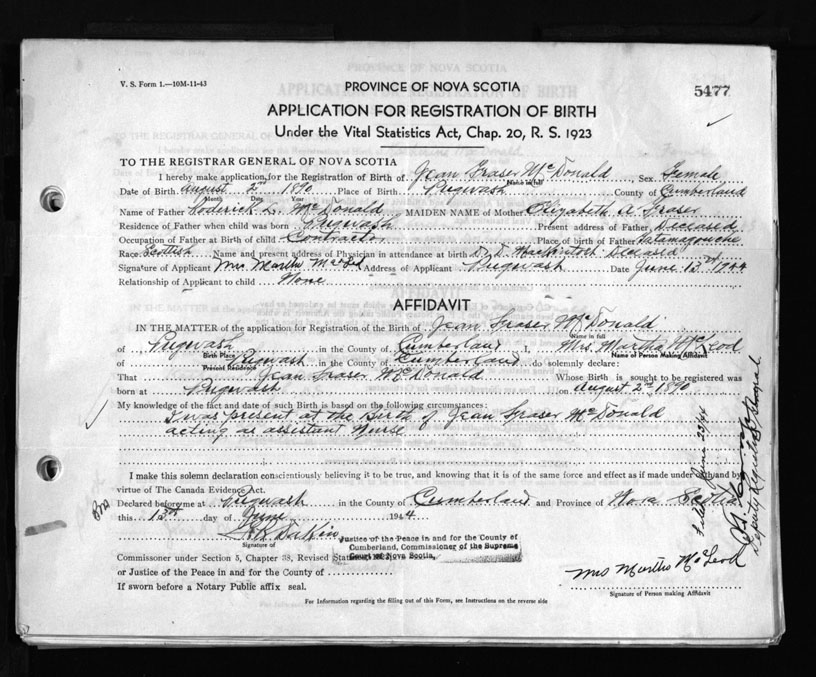 V. S. Form 1.—10M-11-43
PROVINCE OF NOVA SCOTIA
5477
APPLICATION FOR REGISTRATION OF BIRTH
Under the Vital Statistics Act, Chap. 20, R. S. 1923
TO THE REGISTRAR GENERAL OF NOVA SCOTIA
I hereby make application for the Registration of Birth of Jean Fraser McDonald Sex Female
Name in full
Date of Birth August 2nd 1890 Place of Birth Pugwash County of Cumberland
Month Date Year
Name of Father Roderick L. McDonald MAIDEN NAME of Mother Elizabeth A Fraser
Residence of Father when child was born Pugwash Present address of Father Deceased
Occupation of Father at Birth of child Contractor Place of birth of Father Tatamagouche
Race Scottish Name and present address of Physician in attendance at birth Dr. D. MacKintosh Deceased
Signature of Applicant Mrs Martha McLeod Address of Applicant Pugwash Date June 13th 1944
Relationship of Applicant to child None
AFFIDAVIT
IN THE MATTER of the application for Registration of the Birth of Jean Fraser McDonald
Name in full
of Pugwash in the County of Cumberland I, Mrs. Martha McLeod
Birth Place Name of Person Making Affidavit
of Pugwash in the County of Cumberland do solemnly declare:
Present Residence
That Jean Fraser McDonald Whose Birth is sought to be registered was
born at Pugwash on August 2nd 1890
My knowledge of the fact and date of such Birth is based on the following circumstances:
I was present at the Birth of Jean Fraser McDonald
acting as assistant Nurse
I make this solemn declaration conscientiously believing it to be true, and knowing that it is of the same force and effect as if made under oath and by
virtue of The Canada Evidence Act.
Declared before me at Pugwash in the County of Cumberland and Province of Nova Scotia
this 13th day of June 1944
Signature of
Justice of the Peace in and for the County of
Cumberland, Commissioner of the Supreme
Court of Nova Scotia,
Commissioner under Section 5, Chapter 38, Revised Statutes
or Justice of the Peace in and for the County of
If sworn before a Notary Public affix seal.
Mrs Martha McLeod
Signature of Person making Affidavit
For Information regarding the filling out of this Form, see Instructions on the reverse side
Filed June 23/44
Deputy Registrar General